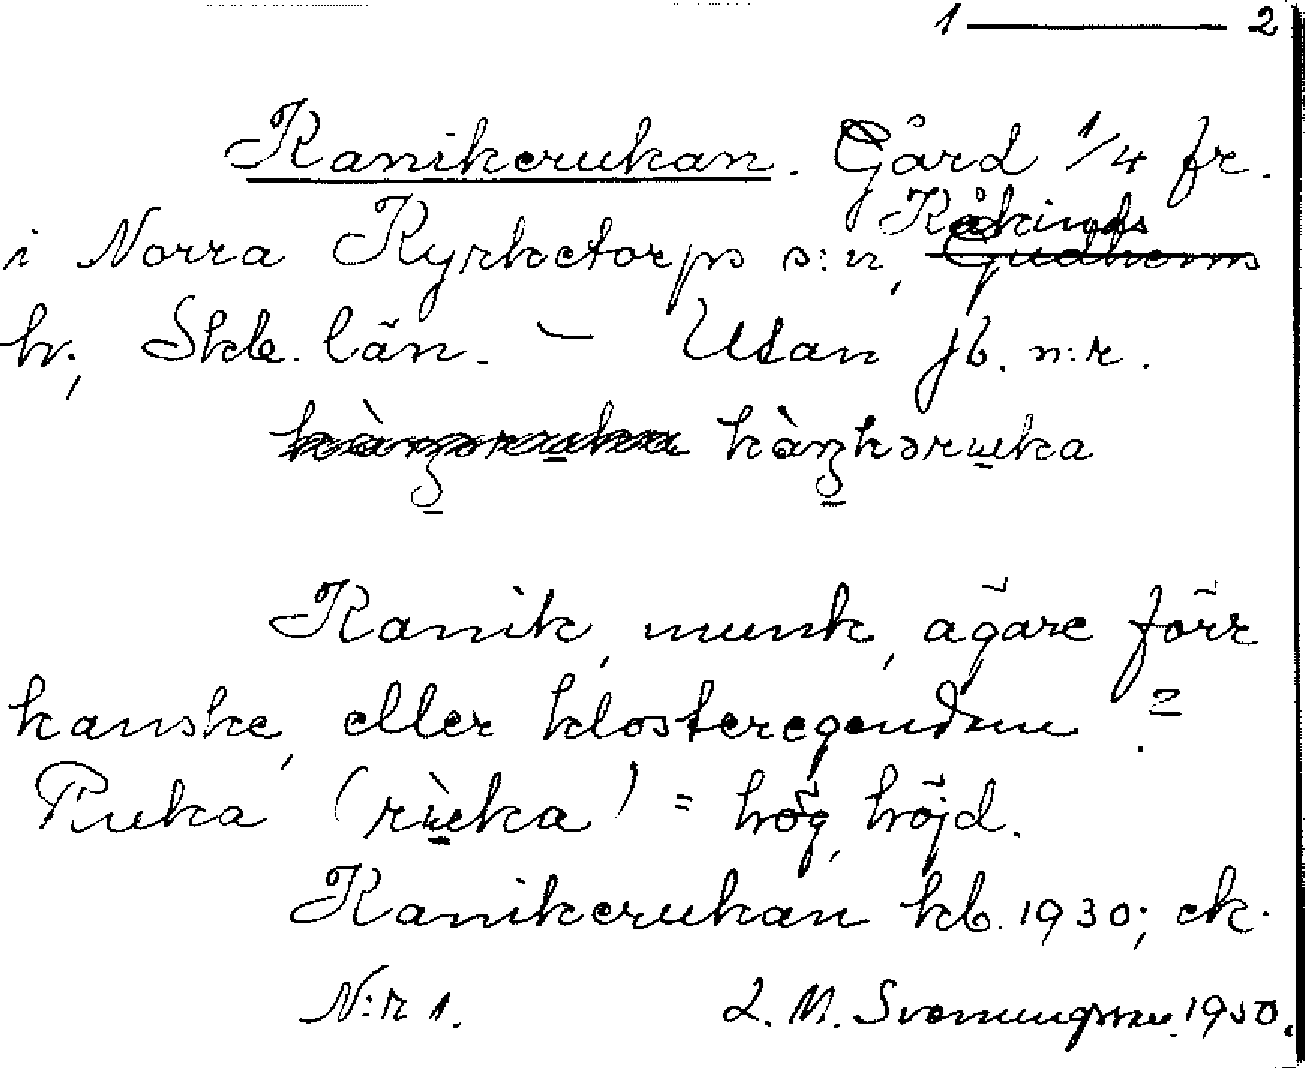 1 — 2
Kanikerukan. Gård 1/4 fr.
Kåkinds
i Norra Kyrketorps s:n, Gudhems
hr, Skb. län. — Utan jb. n:r.
kàŋkəruka
Kanik, munk, ägare förr
kanske, eller klosteregendom?
Ruka (rùka) = hög, höjd.
Kanikerukan kb. 1930; ek.
N:r 1. L. M. Svenungsson. 1950.